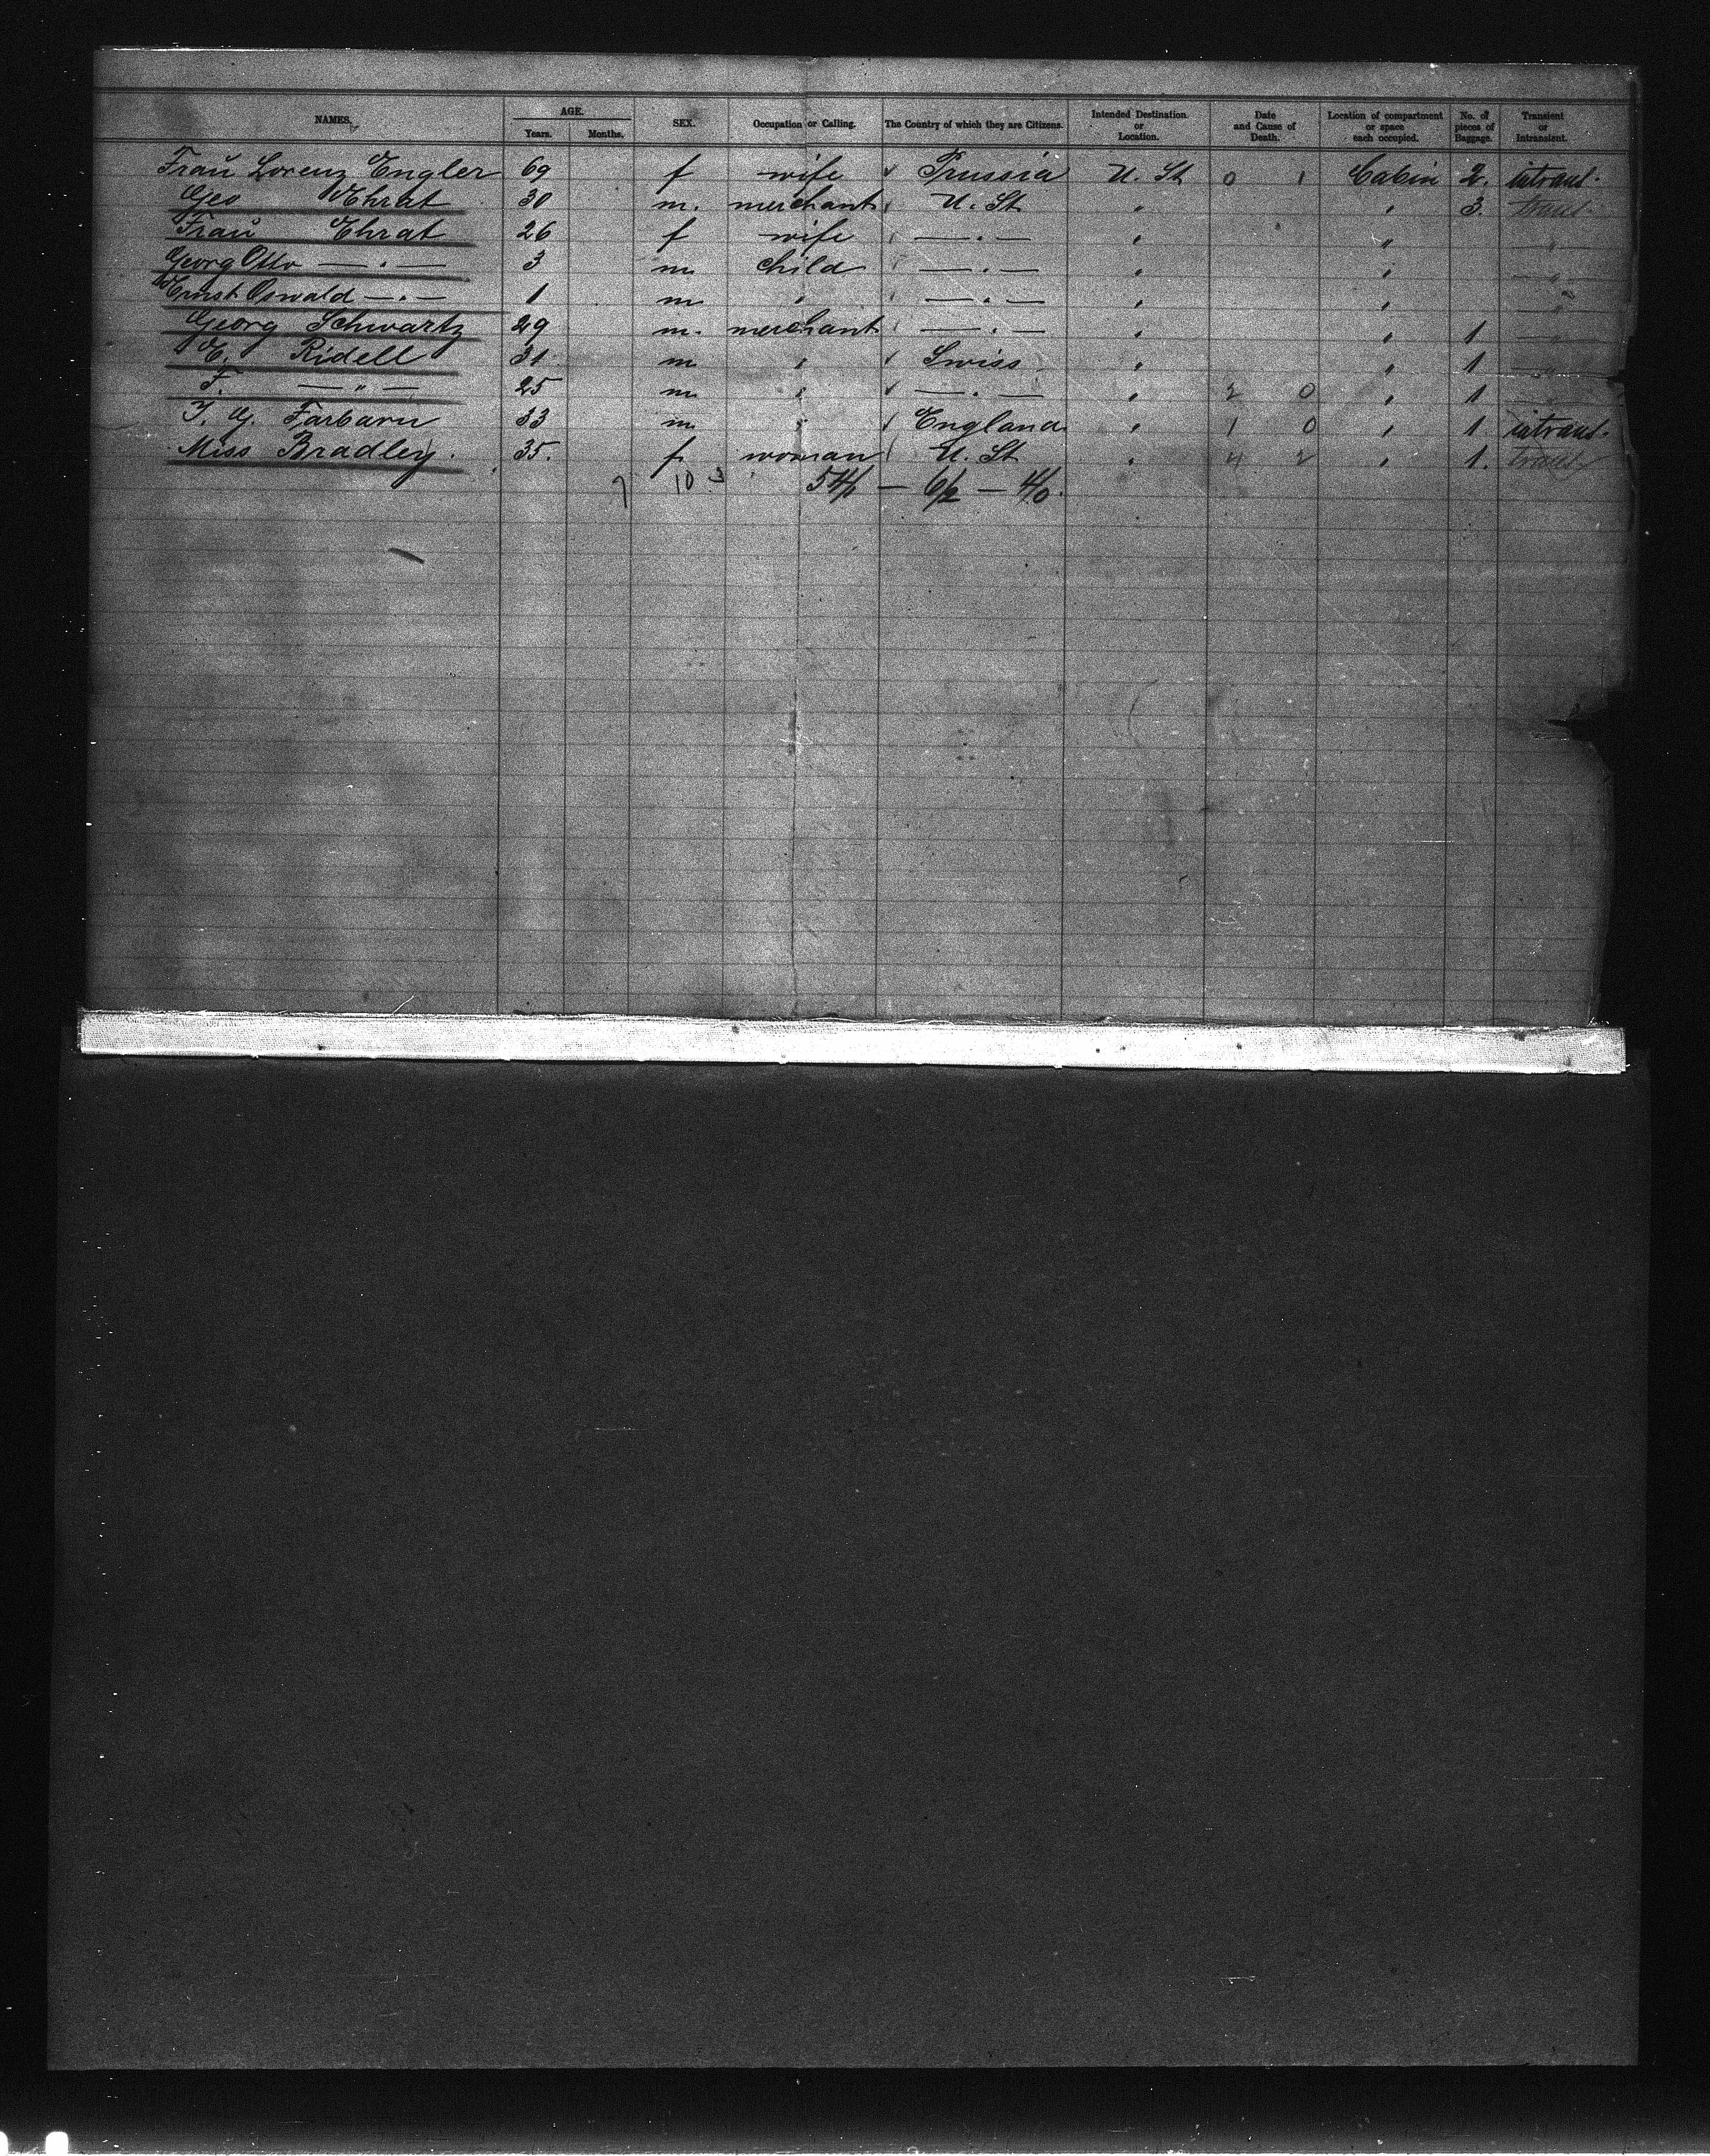 NAMES. AGE. Years. Months. SEX. Occupation or Calling. The Country of which they are Citizens. Intended Destination or Location. Date and Cause of Death. Location of compartment or space each occupied. No. of pieces of Baggage. Transient or Intransient.
Fraŭ Lorenz Engler 69 f wife Prussia U. St. 0 1 Cabin 2. intrans.
Geo Ehrat 30 m. merchant U. St. " " 3. trans.
Fraŭ Ehrat 26 f wife — " — " " "
Georg Otto — " — 3 m child — " — " " "
Ernst Oswald — " — 1 m " — " — " " "
Georg Schwartz 29 m. merchant — " — " " 1 "
E. Ridell 31 m " Swiss " " 1 "
F. — " — 25 m " — " — " 2 0 " 1 "
T. G. Farbarn 33 m " England " 1 0 " 1 intrans.
Miss Bradley. 35. f woman U. St. " 4 2 " 1. trans.
7 10 3 54/1 — 6/2 — 4/0.